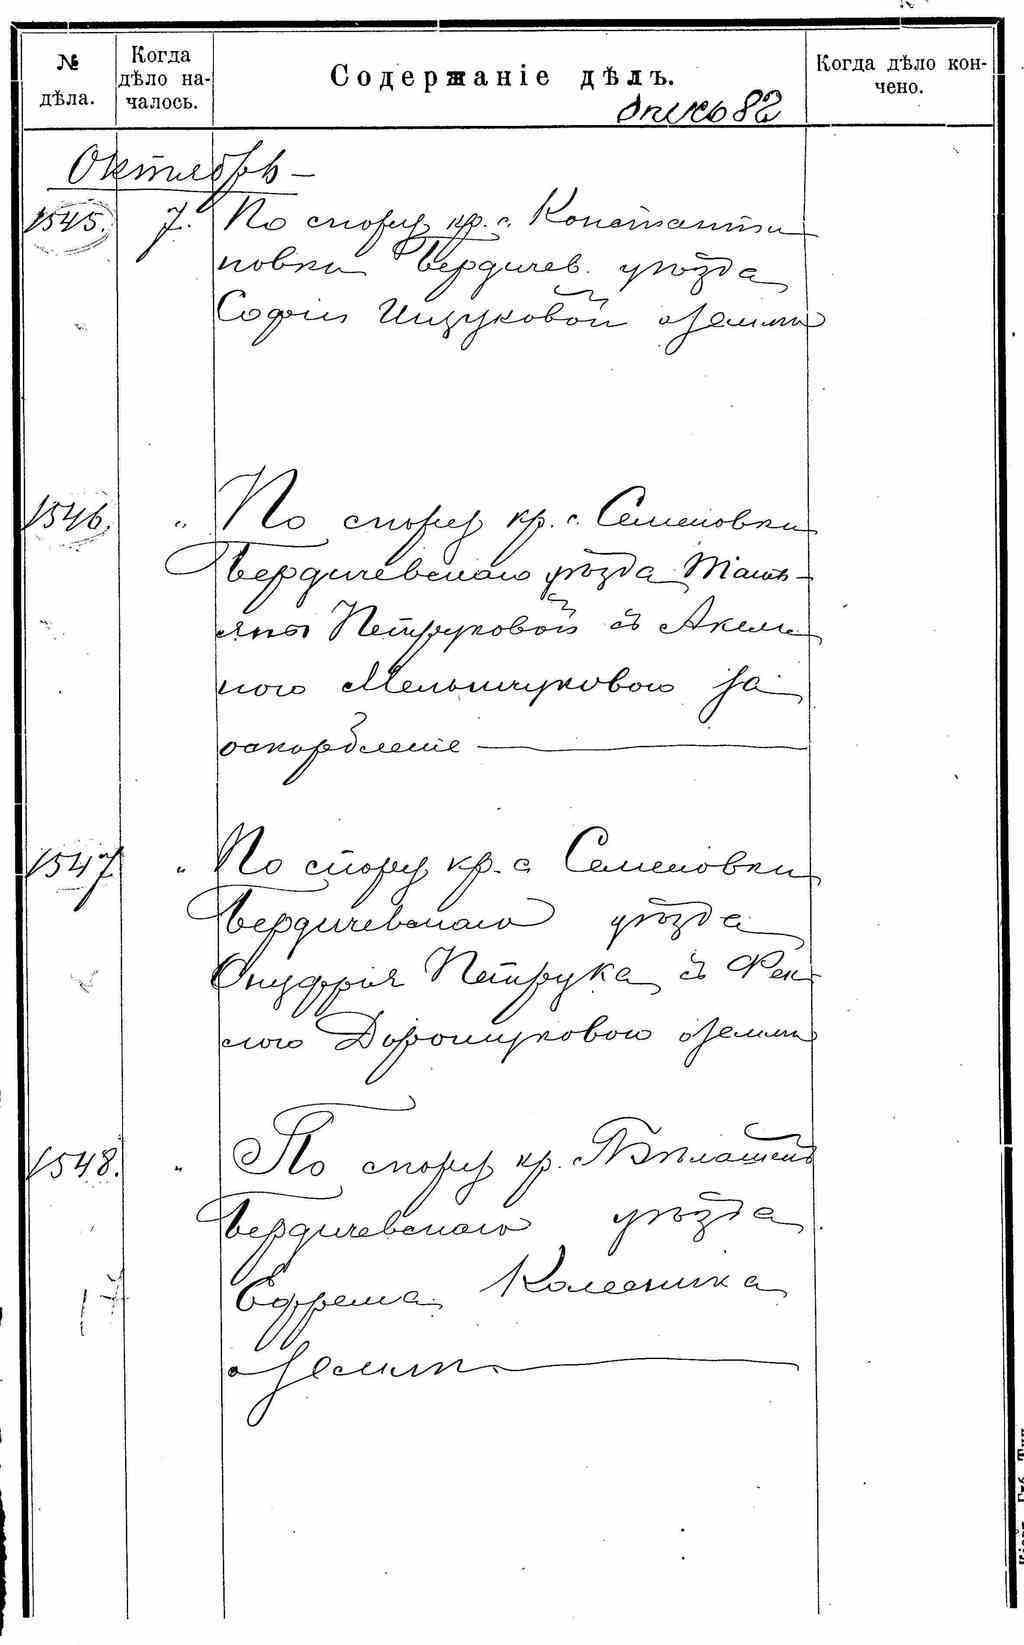 № дѣла.
Когда дѣло на-
чалось.
Содержаніе дѣлъ.
Когда дѣло кон-
чено.
опись 82
Октябрь —
1545. 7. По спору кр. с. Константи
новки Бердичев. уѣзда
Софіи Ищуковой о землѣ
1546. " По спору кр. с. Семеновки
Бердичевскаго уѣзда Тать-
яны Петруковой съ Акели
ною Мельничуковою за
оскорбленіе
1547 " По спору кр. с Семеновки
Бердичевскаго уѣзда
Онуфрія Петрука съ Фек-
лою Дорощуковою о землѣ
1548. " По спору кр.
Бердичевскаго уѣзда
Ефрема Колесника
о землѣ.